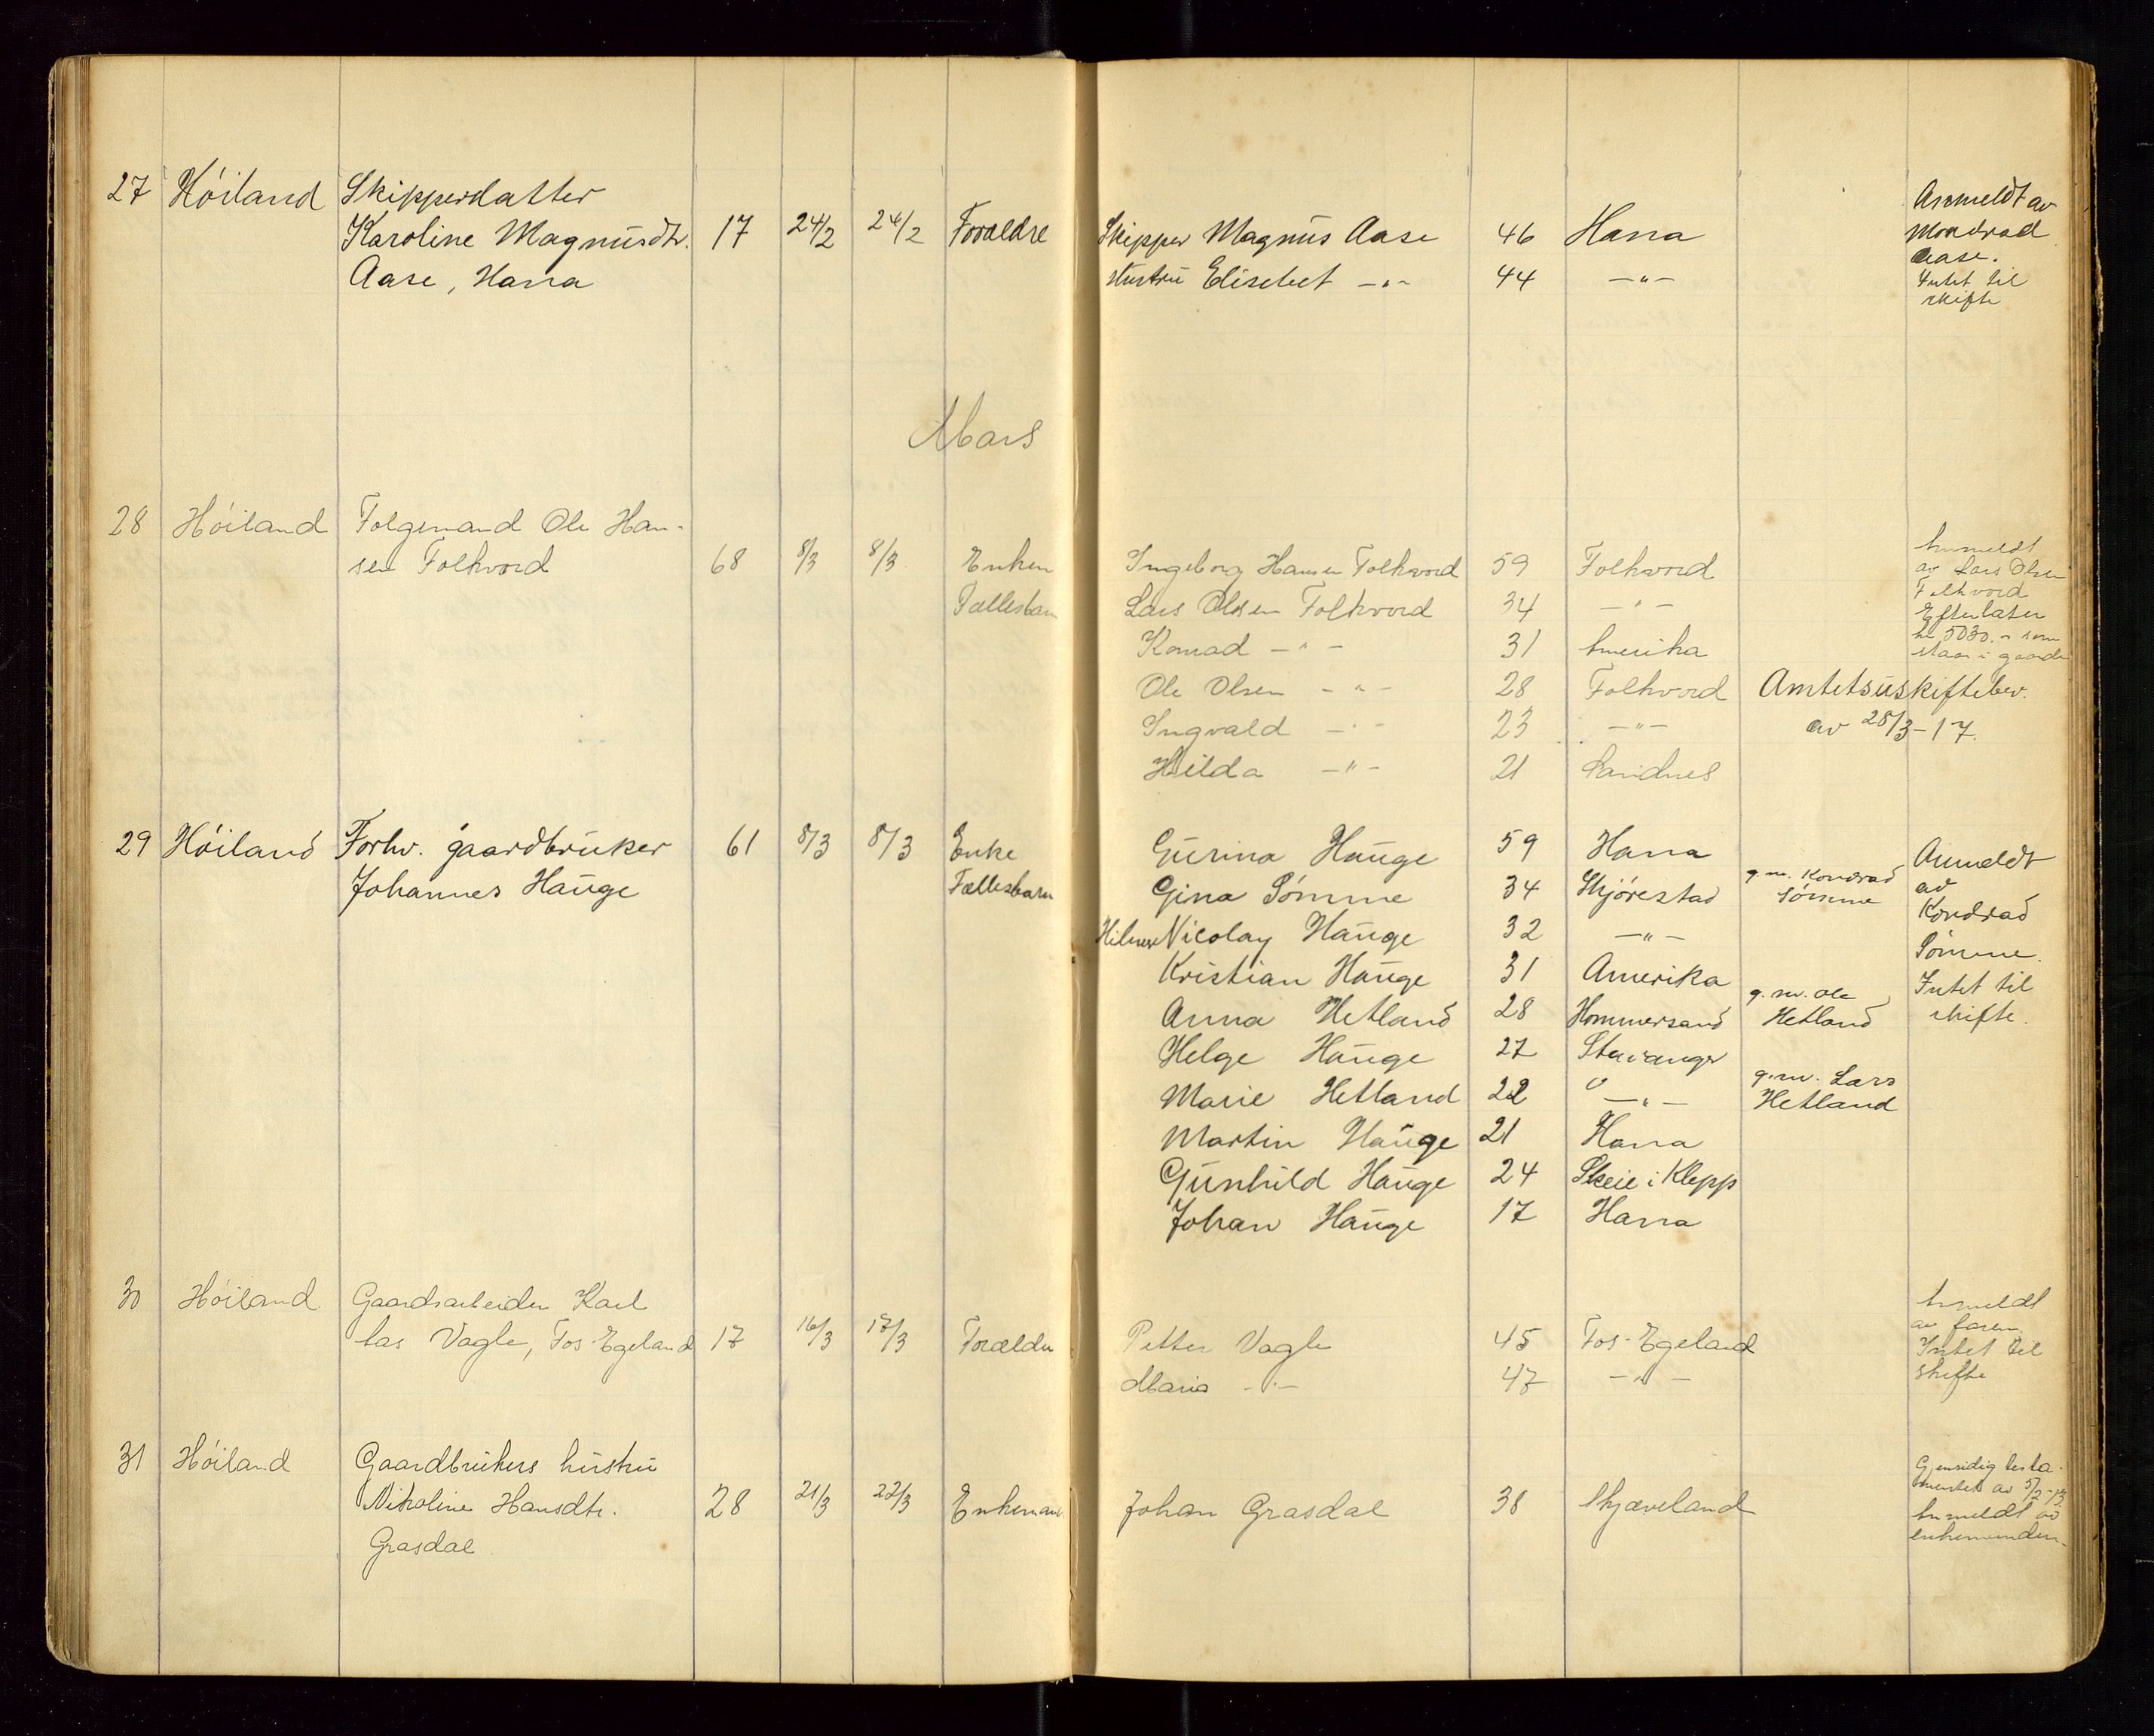 27 Höiland Skipperdatter
Karoline Magnusdtr. 17 24/2 24/2 Forældre Skipper Magnus Aase 46 Hana Anmeldt av
Aase, Hana Hustru Elisebet -"- 44 -"- Aase.
Intet til
skifte
Mars
28 Höiland Folgemand Ole Han-
sen Folkvord 68 8/3 8/3 Enken Ingeborg Hansen Folkvord 59 Folkvord Anmeldt
av Lars Olsen
Fællesbarn Lars Olsen Folkvord 34 -"- Folkvord
Efterlater
Konrad -"- 31 Amerika kr 5030.- som
staar i gaarden
Ole Olsen -"- 28 Folkvord Amtets uskiftebev.
Ingvald -"- 23 -"- av 28/3-17.
Hilda -"- 21 Sandnes
29 Höiland Forhv. gaardbruker 61 8/3 8/3 Enke Gurina Hauge 59 Hana Anmeldt
Johannes Hauge Fællesbarn Gina Sömme 34 Skjörestad g.m. Kondrad Sömme av
Kondrad
Nicolay Hauge 32 -"- Sömme.
Kristian Hauge 31 Amerika Intet til
Anna Hetland 28 Hommersand g.m. Ole Hetland skifte.
Helge Hauge 27 Stavanger
Marie Hetland 22 -"- g.m. Lars Hetland
Martin Hauge 21 Hana
Gunhild Hauge 24 Skeie i Klepp
Johan Hauge 17 Hana
30 Höiland Gaardsarbeider Karl
Vagle, Fos-Egeland 17 16/3 17/3 Forældre Petter Vagle 45 Fos-Egeland Anmeldt
av faren.
Maria -"- 47 -"- Intet til
skifte
31 Höiland Gaardbrukers hustru
Nikoline Hansdtr. 28 21/3 22/3 Enkemand Johan Grasdal 38 Skjæveland Gjensidig testa-
mentet av 5/2-13.
Grasdal Anmeldt av
enkemanden.